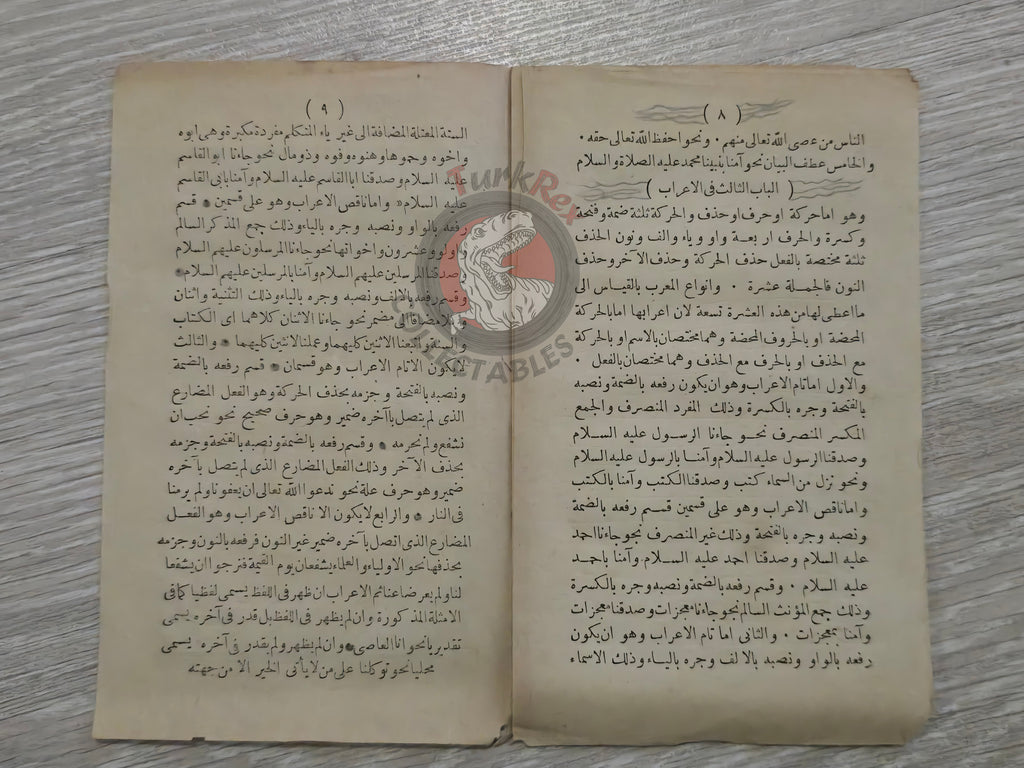 ( ٨ )
الناس من عصى الله تعالى منهم ٠ ونحو احفظ الله تعالى حقه ٠
والخامس عطف البيان نحو آمنا بنبينا محمد عليه الصلاة والسلام
( الباب الثالث فى الاعراب )
وهو اما حركة او حرف او حذف والحركة ثلثة ضمة وفتحة
وكسرة والحرف اربعة واو وياء والف ونون والحذف
ثلثة مختصة بالفعل حذف الحركة وحذف الآخر وحذف
النون فالجملة عشرة ٠ وانواع المعرب بالقياس الى
ما اعطى لها من هذه العشرة تسعة لان اعرابها اما بالحركة
المحضة او بالحروف المحضة وهما مختصان بالاسم او بالحركة
مع الحذف او بالحرف مع الحذف وهما مختصان بالفعل ٠
والاول اما تام الاعراب وهو ان يكون رفعه بالضمة ونصبه
بالفتحة وجره بالكسرة وذلك المفرد المنصرف والجمع
المكسر المنصرف نحو جاءنا الرسول عليه السلام
وصدقنا الرسول عليه السلام وآمنا بالرسول عليه السلام
ونحو نزل من السماء كتب وصدقنا الكتب وآمنا بالكتب
واما ناقص الاعراب وهو على قسمين قسم رفعه بالضمة
ونصبه وجره بالفتحة وذلك غير المنصرف نحو جاءنا احمد
عليه السلام وصدقنا احمد عليه السلام وآمنا باحمد
عليه السلام ٠ وقسم رفعه بالضمة ونصبه وجره بالكسرة
وذلك جمع المؤنث السالم نحو جاءتنا معجزات وصدقنا معجزات
وآمنا بمعجزات ٠ والثانى اما تام الاعراب وهو ان يكون
رفعه بالواو ونصبه بالالف وجره بالياء وذلك الاسماء
( ٩ )
الستة المعتلة المضافة الى غير ياء المتكلم مفردة مكبرة وهى ابوه
واخوه وحموها وهنوه وفوه وذو مال نحو جاءنا ابو القاسم
عليه السلام وصدقنا ابا القاسم عليه السلام وآمنا بابى القاسم
عليه السلام واما ناقص الاعراب وهو على قسمين قسم
رفعه بالواو ونصبه وجره بالياء وذلك جمع المذكر السالم
واولو وعشرون واخواتها نحو جاءنا المرسلون عليهم السلام
وصدقنا المرسلين عليهم السلام وآمنا بالمرسلين عليهم السلام
وقسم رفعه بالالف ونصبه وجره بالياء وذلك التثنية واثنان
وكلا مضافا الى مضمر نحو جاءنا الاثنان كلاهما اى الكتاب
والسنة واتبعنا الاثنين كليهما وعملنا بالاثنين كليهما والثالث
لا يكون الا تام الاعراب وهو قسمان قسم رفعه بالضمة
ونصبه بالفتحة وجزمه بحذف الحركة وهو الفعل المضارع
الذى لم يتصل بآخره ضمير وهو حرف صحيح نحو نحب ان
نشفع ولم نحرمه وقسم رفعه بالضمة ونصبه بالفتحة وجزمه
بحذف الآخر وذلك الفعل المضارع الذى لم يتصل بآخره
ضمير وهو حرف علة نحو ندعوا الله تعالى ان يعفونا ولم يرمنا
فى النار والرابع لا يكون الا ناقص الاعراب وهو الفعل
المضارع الذى اتصل بآخره ضمير غير النون فرفعه بالنون وجزمه
بحذفها نحو الاولياء والعلماء يشفعان يوم القيمة فنرجوا ان يشفعا
لنا ولم يعرضا عنا ثم الاعراب ان ظهر فى اللفظ يسمى لفظيا كما فى
الامثلة المذكورة وان لم يظهر فى اللفظ بل قدر فى آخره يسمى
تقديريا نحو انا العاصى وان لم يظهر ولم يقدر فى آخره يسمى
محليا نحو توكلنا على من لا يأتى الخير الا من جهته
TurkRex
COLLECTABLES